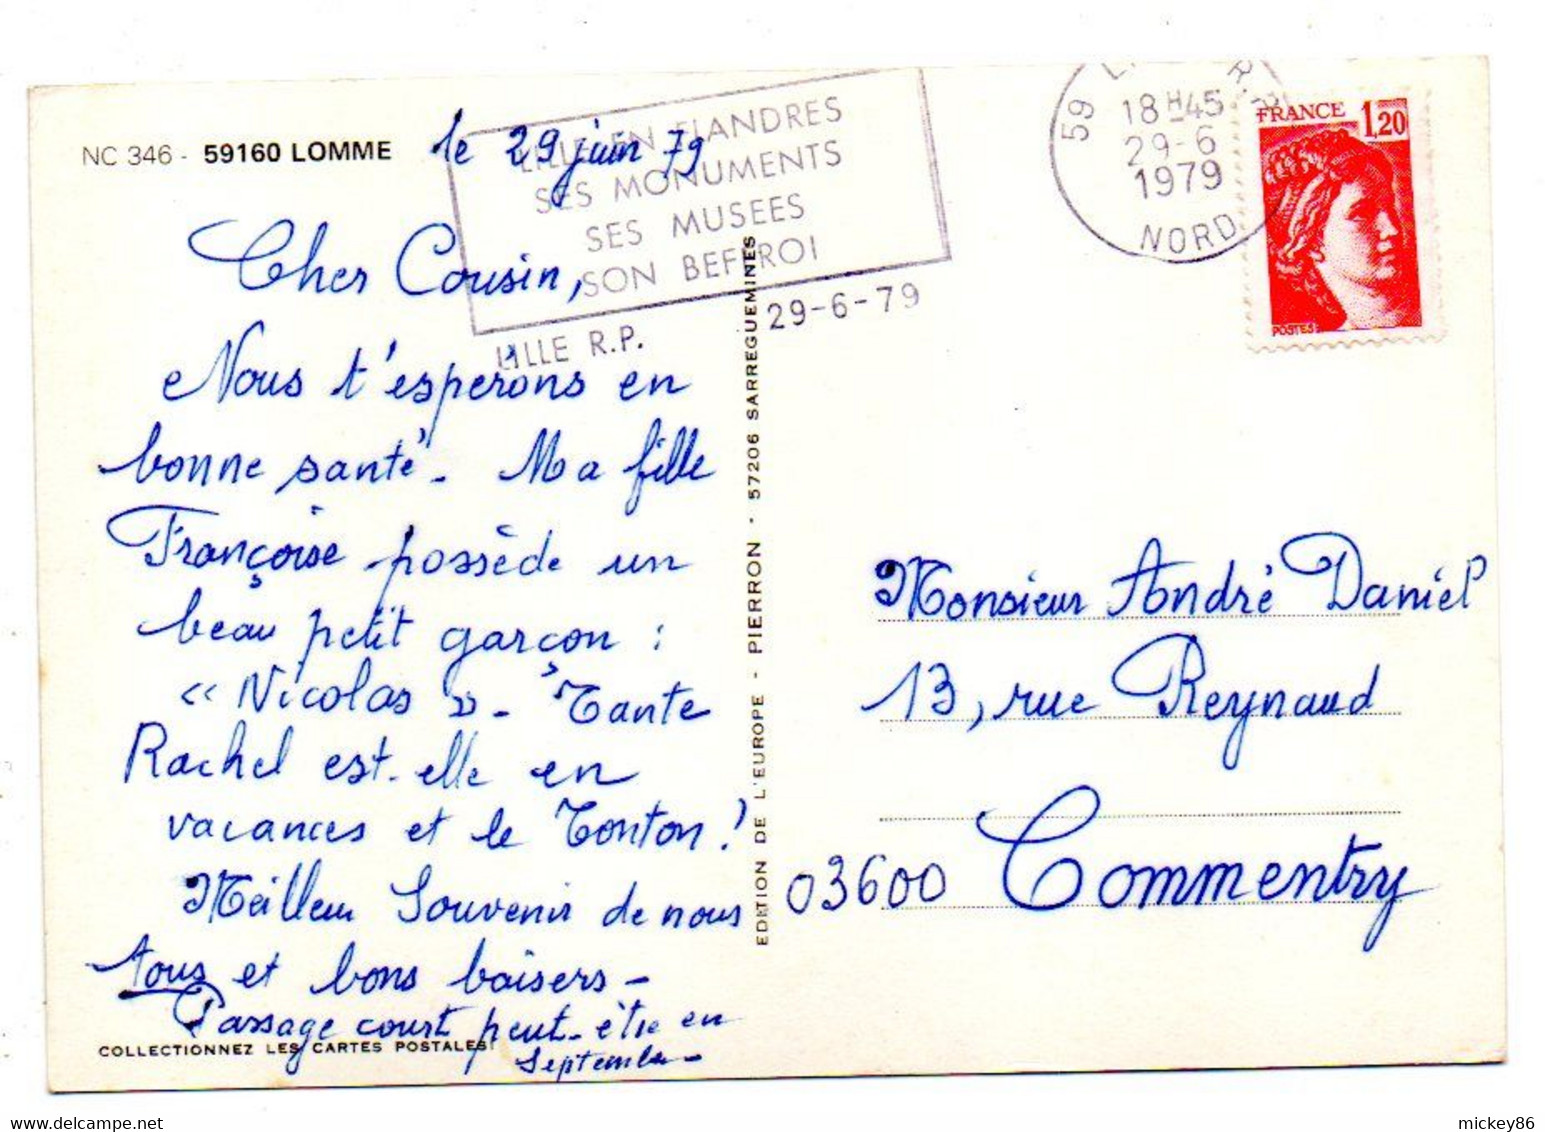 NC 346 - 59160 LOMME
le 29 juin 79
Cher Cousin,
Nous t'espérons en
bonne santé - Ma fille
Françoise possède un
beau petit garçon :
« Nicolas » - Tante
Rachel est-elle en
vacances et le Tonton !
Meilleur Souvenir de nous
tous et bons baisers -
Passage court peut-être en
Septembre -
COLLECTIONNEZ LES CARTES POSTALES
LILLE EN FLANDRES
SES MONUMENTS
SES MUSEES
SON BEFFROI
LILLE R.P.
29-6-79
EDITION DE L'EUROPE - PIERRON - 57206 SARREGUEMINES
59
18H45
29-6
1979
NORD
FRANCE 1,20
POSTES
Monsieur André Daniel
13, rue Reynaud
03600 Commentry
mickey86